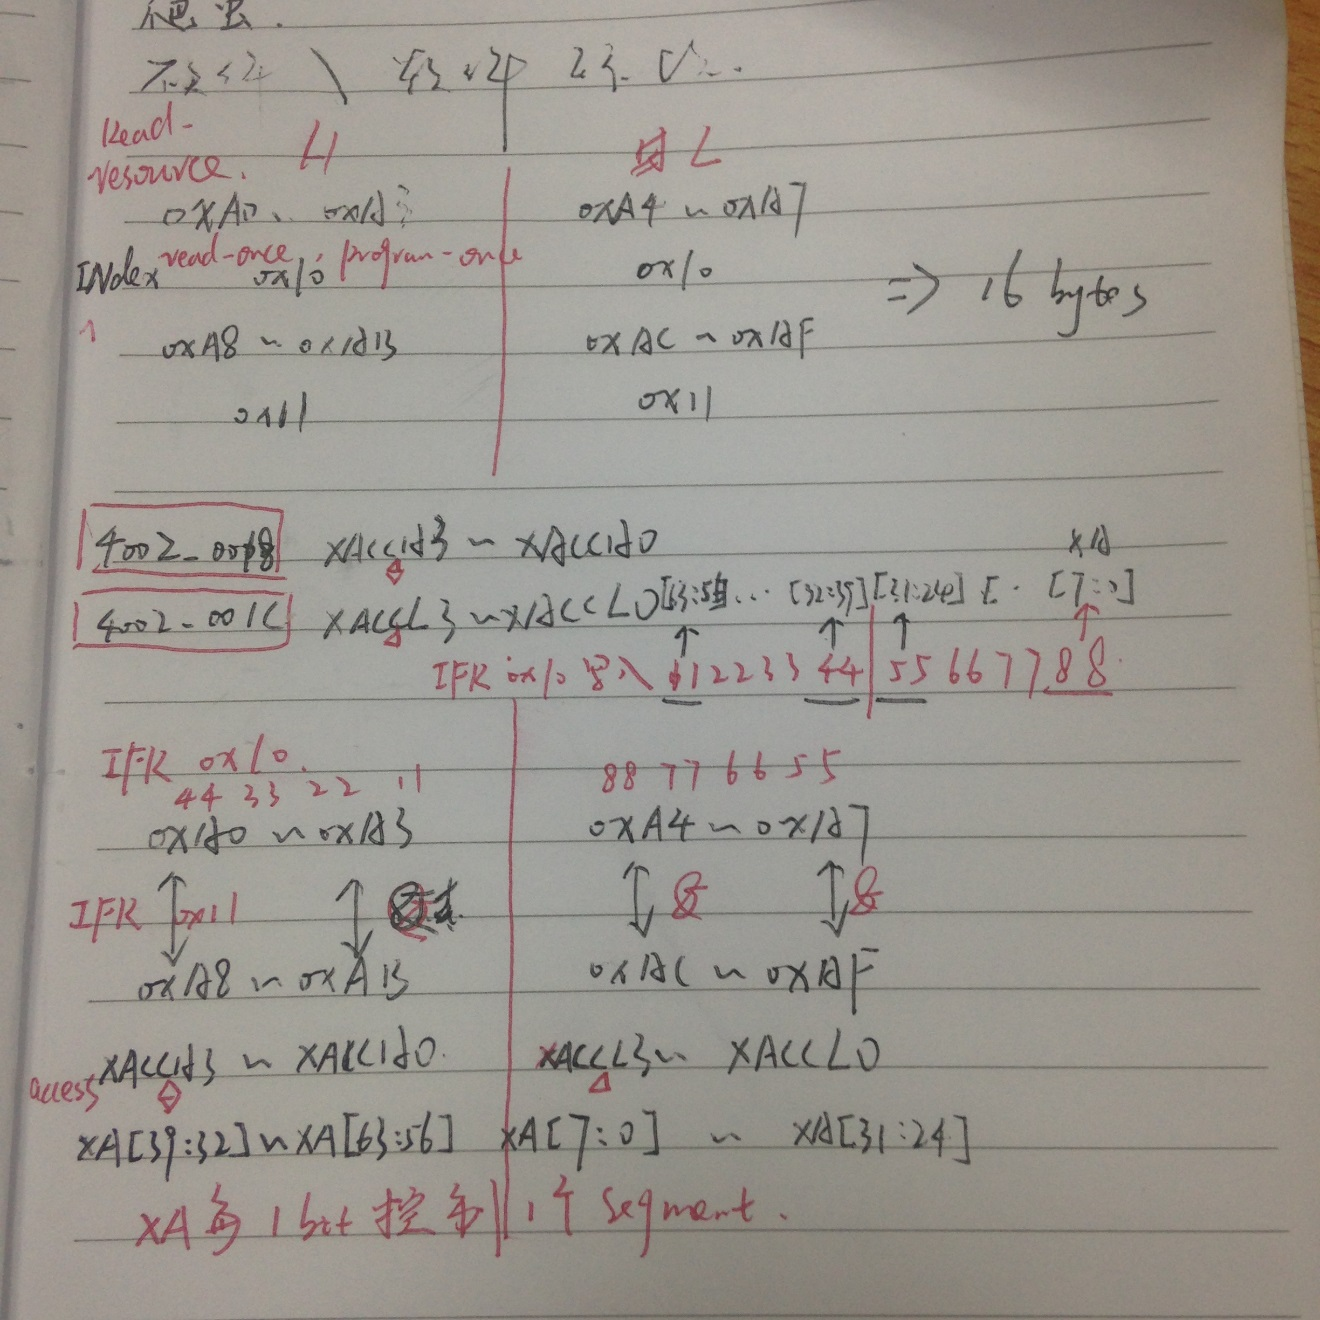 爬虫.
Read-
resource. H L
0xA0、 0xA3 0xA4 ~ 0xA7
INdex read-once, program-once
0x10 0x10 => 16 bytes
0xA8 ~ 0xAB 0xAC ~ 0xAF
0x11 0x11
4002_0018 XACCH3 ~ XACCH0 XA
4002_001C XACCL3 ~ XACCL0 [63:56]... [32:39] [31:24] [. [7:0]
IFR 0x10 写入 11223344 55667788
IFR 0x10.
44 33 22 11 88 77 66 55
0xA0 ~ 0xA3 0xA4 ~ 0xA7
IFR 0x11 & &
0xA8 ~ 0xAB 0xAC ~ 0xAF
access XACCH3 ~ XACCH0. XACCL3 ~ XACCL0
XA[39:32] ~ XA[63:56] XA[7:0] ~ XA[31:24]
XA每1bit控制1个Segment.